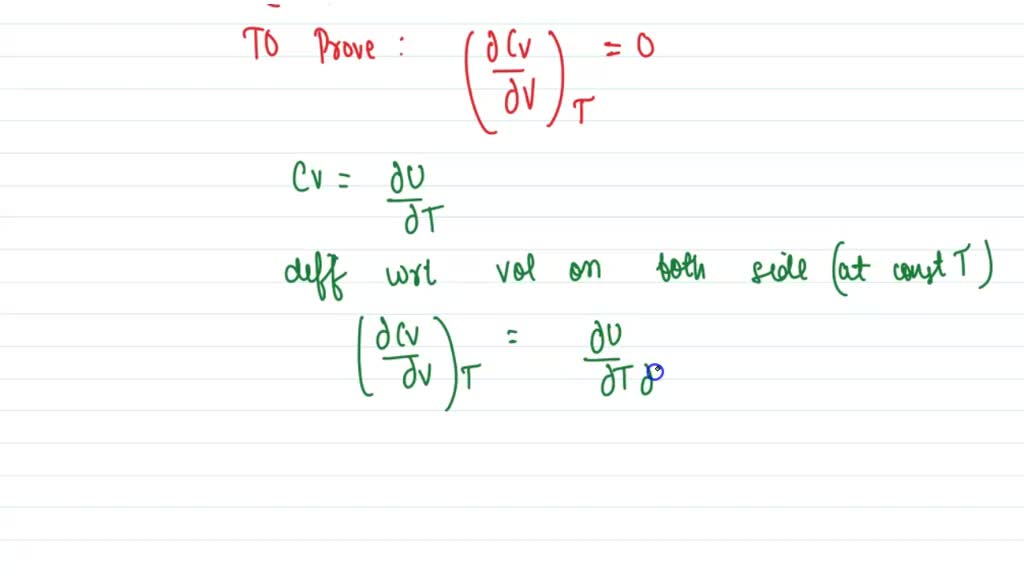 TO Prove : (∂Cv/∂V)_T = 0
Cv = ∂U/∂T
deff wrt vol on both side (at const T)
(∂Cv/∂V)_T = ∂U/∂T∂